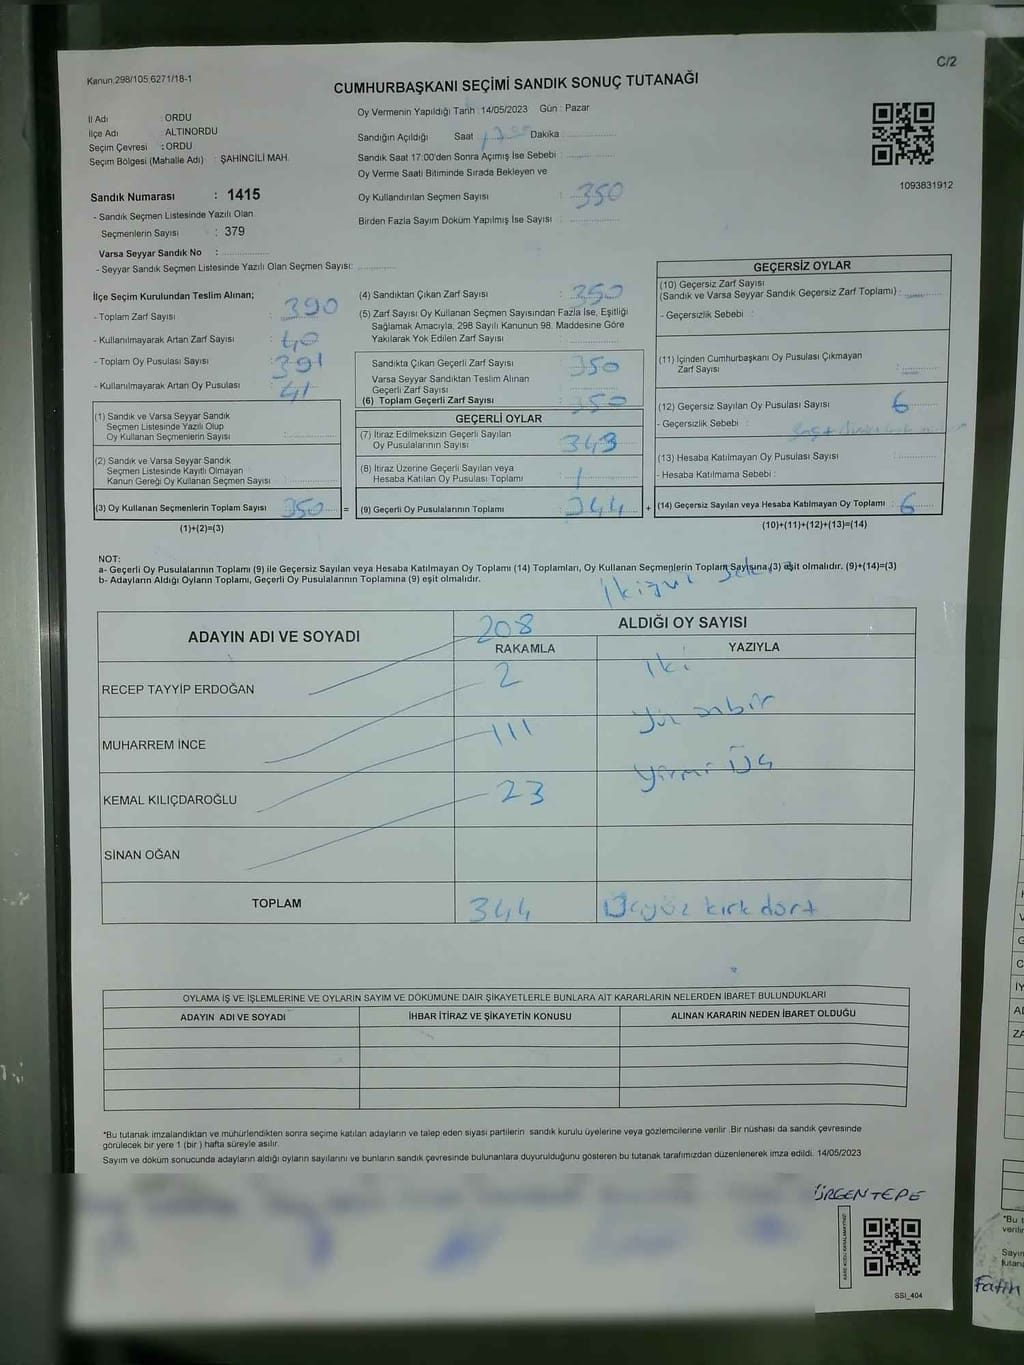 C/2
Kanun,298/105,6271/18-1
CUMHURBAŞKANI SEÇİMİ SANDIK SONUÇ TUTANAĞI
İl Adı : ORDU
İlçe Adı : ALTINORDU
Seçim Çevresi : ORDU
Seçim Bölgesi (Mahalle Adı) : ŞAHİNCİLİ MAH.
Sandık Numarası : 1415
- Sandık Seçmen Listesinde Yazılı Olan
Seçmenlerin Sayısı : 379
Varsa Seyyar Sandık No :
- Seyyar Sandık Seçmen Listesinde Yazılı Olan Seçmen Sayısı:
Oy Vermenin Yapıldığı Tarih : 14/05/2023 Gün : Pazar
Sandığın Açıldığı Saat Dakika
Sandık Saat 17:00'den Sonra Açımış İse Sebebi :
Oy Verme Saati Bitiminde Sırada Bekleyen ve
Oy Kullandırılan Seçmen Sayısı : 350
Birden Fazla Sayım Döküm Yapılmış İse Sayısı :
1093831912
İlçe Seçim Kurulundan Teslim Alınan;
- Toplam Zarf Sayısı : 390
- Kullanılmayarak Artan Zarf Sayısı : 40
- Toplam Oy Pusulası Sayısı : 391
- Kullanılmayarak Artan Oy Pusulası : 41
(1) Sandık ve Varsa Seyyar Sandık
Seçmen Listesinde Yazılı Olup
Oy Kullanan Seçmenlerin Sayısı :
(2) Sandık ve Varsa Seyyar Sandık
Seçmen Listesinde Kayıtlı Olmayan
Kanun Gereği Oy Kullanan Seçmen Sayısı :
(3) Oy Kullanan Seçmenlerin Toplam Sayısı : 350 =
(1)+(2)=(3)
(4) Sandıktan Çıkan Zarf Sayısı : 350
(5) Zarf Sayısı Oy Kullanan Seçmen Sayısından Fazla İse, Eşitliği
Sağlamak Amacıyla; 298 Sayılı Kanunun 98. Maddesine Göre
Yakılarak Yok Edilen Zarf Sayısı :
Sandıkta Çıkan Geçerli Zarf Sayısı : 350
Varsa Seyyar Sandıktan Teslim Alınan
Geçerli Zarf Sayısı :
(6) Toplam Geçerli Zarf Sayısı : 350
GEÇERLİ OYLAR
(7) İtiraz Edilmeksizin Geçerli Sayılan
Oy Pusulalarının Sayısı : 343
(8) İtiraz Üzerine Geçerli Sayılan veya
Hesaba Katılan Oy Pusulası Toplamı : 1
(9) Geçerli Oy Pusulalarının Toplamı : 344 +
GEÇERSİZ OYLAR
(10) Geçersiz Zarf Sayısı
(Sandık ve Varsa Seyyar Sandık Geçersiz Zarf Toplamı) :
- Geçersizlik Sebebi :
(11) İçinden Cumhurbaşkanı Oy Pusulası Çıkmayan
Zarf Sayısı :
(12) Geçersiz Sayılan Oy Pusulası Sayısı : 6
- Geçersizlik Sebebi :
(13) Hesaba Katılmayan Oy Pusulası Sayısı :
- Hesaba Katılmama Sebebi :
(14) Geçersiz Sayılan veya Hesaba Katılmayan Oy Toplamı : 6
(10)+(11)+(12)+(13)=(14)
NOT:
a- Geçerli Oy Pusulalarının Toplamı (9) ile Geçersiz Sayılan veya Hesaba Katılmayan Oy Toplamı (14) Toplamları, Oy Kullanan Seçmenlerin Toplam Sayısına (3) eşit olmalıdır. (9)+(14)=(3)
b- Adayların Aldığı Oyların Toplamı, Geçerli Oy Pusulalarının Toplamına (9) eşit olmalıdır.
ADAYIN ADI VE SOYADI
ALDIĞI OY SAYISI
RAKAMLA YAZIYLA
RECEP TAYYİP ERDOĞAN 208
MUHARREM İNCE 2 iki
KEMAL KILIÇDAROĞLU 111 yüz onbir
SİNAN OĞAN 23 yirmi üç
TOPLAM 344 Üçyüz kırk dört
OYLAMA İŞ VE İŞLEMLERİNE VE OYLARIN SAYIM VE DÖKÜMÜNE DAİR ŞİKAYETLERLE BUNLARA AİT KARARLARIN NELERDEN İBARET BULUNDUKLARI
ADAYIN ADI VE SOYADI İHBAR İTİRAZ VE ŞİKAYETİN KONUSU ALINAN KARARIN NEDEN İBARET OLDUĞU
*Bu tutanak imzalandıktan ve mühürlendikten sonra seçime katılan adayların ve talep eden siyasi partilerin sandık kurulu üyelerine veya gözlemcilerine verilir .Bir nüshası da sandık çevresinde
görülecek bir yere 1 (bir ) hafta süreyle asılır.
Sayım ve döküm sonucunda adayların aldığı oyların sayılarını ve bunların sandık çevresinde bulunanlara duyurulduğunu gösteren bu tutanak tarafımızdan düzenlenerek imza edildi. 14/05/2023
ÜRGENTEPE
KARE KODU KARALAMAYINIZ!
SSI_404
*Bu t
verilir
Sayım
tutana
Fatih